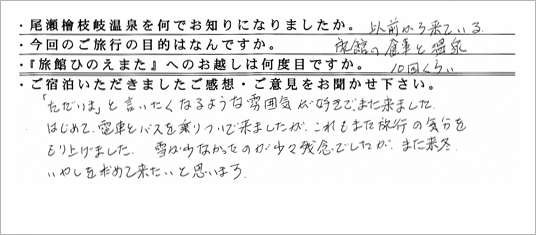 ・尾瀬檜枝岐温泉を何でお知りになりましたか。 以前から来ている
・今回のご旅行の目的はなんですか。 旅館の食事と温泉
・『旅館ひのえまた』へのお越しは何度目ですか。 10回くらい
・ご宿泊いただきましたご感想・ご意見をお聞かせ下さい。
「ただいま」と言いたくなるような雰囲気が好きで、また来ました。
はじめて、電車とバスを乗りついで来ましたが、これもまた旅行の気分を
もり上げました。 雪が少なかったのが少々残念でしたが、また来冬
いやしを求めて来たいと思います。